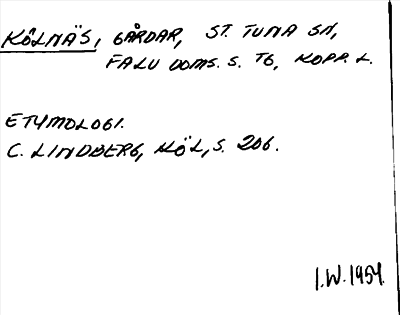 KÖLNÄS, GÅRDAR, ST. TUNA SN,
FALU DOMS. S. TG, KOPP. L.
ETYMOLOGI.
C. LINDBERG, KÖL, S. 206.
I.W. 1954.